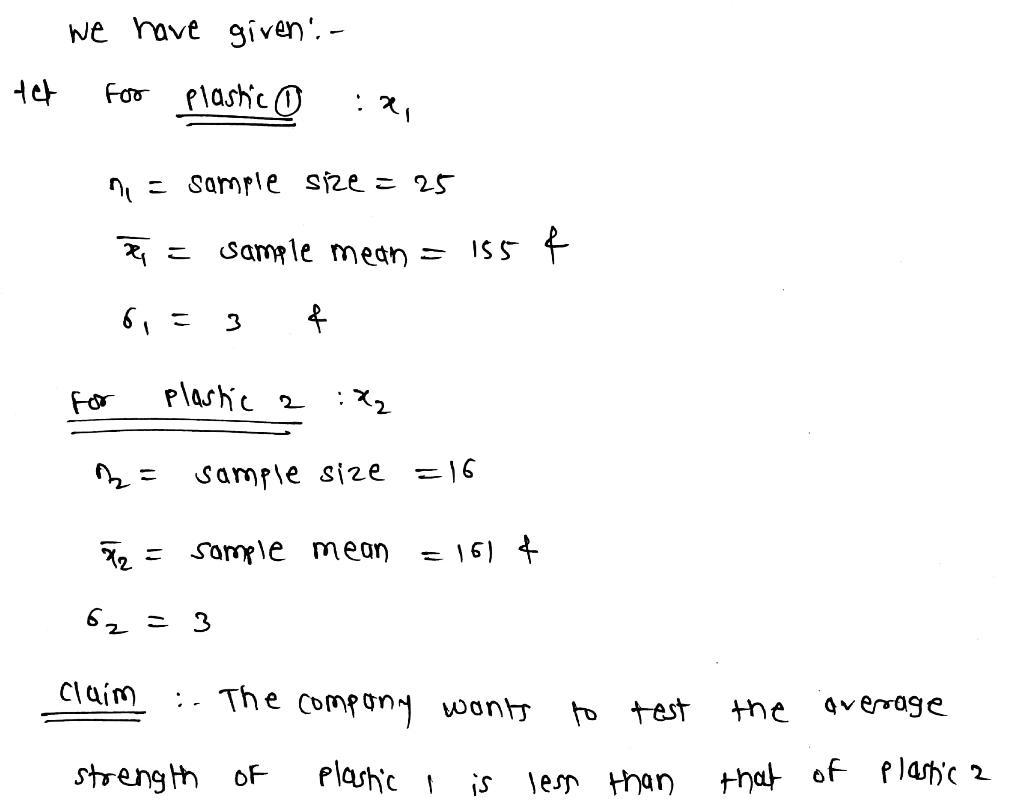 we have given :-
let For plastic ① : x₁
n₁ = sample size = 25
x̄₁ = sample mean = 155 &
σ₁ = 3 &
For plastic 2 : x₂
n₂ = sample size = 16
x̄₂ = sample mean = 161 &
σ₂ = 3
Claim :- The company wants to test the average
strength of plastic 1 is less than that of plastic 2